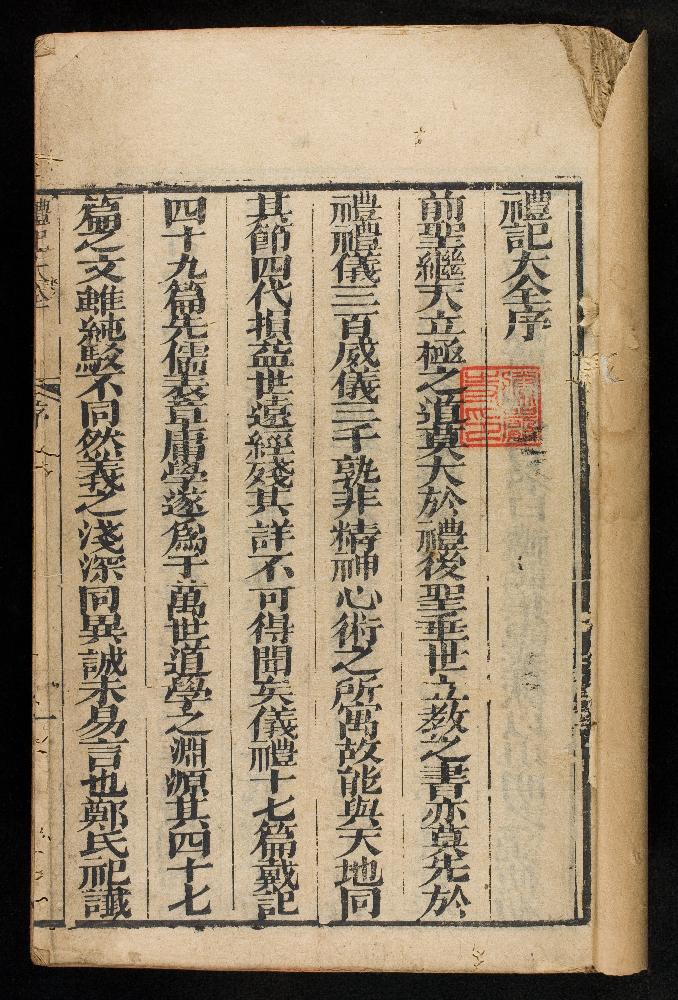 禮記大全序
前聖繼天立極之道莫大於禮後聖垂世立教之書亦莫先於
禮禮儀三百威儀三千孰非精神心術之所寓故能與天地同
其節四代損益世遠經殘其詳不可得聞矣儀禮十七篇戴記
四十九篇先儒表章庸學遂爲千萬世道學之淵源其四十七
篇之文雖純駁不同然義之淺深同異誠未易言也鄭氏祀讖
禮記大全
序